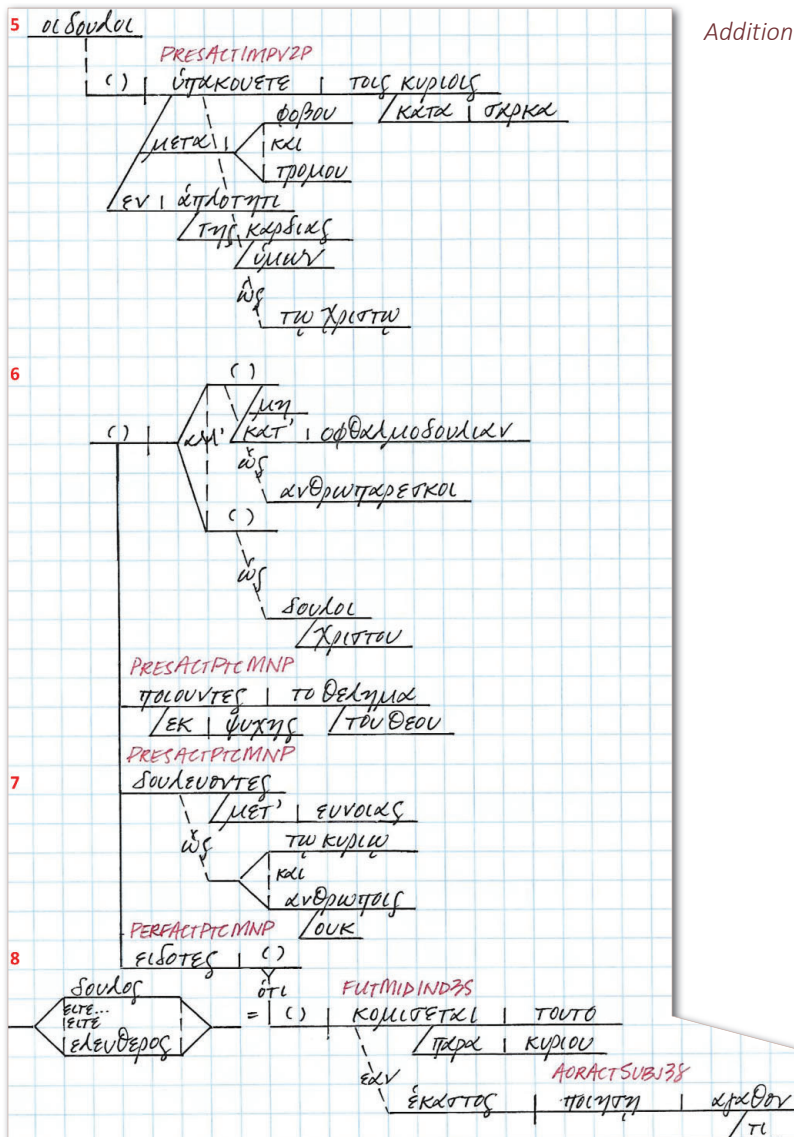 Addition
5 οι δουλοι
PRESACTIMPV2P
( ) ὑπακουετε τοις κυριοις
φοβου κατα σαρκα
μετα και
τρομου
εν ἁπλοτητι
της καρδιας
ὑμων
ὡς
τω χριστω
6 ( )
μη
( ) αλλ' κατ' οφθαλμοδουλιαν
ὡς
ανθρωπαρεσκοι
( )
ὡς
δουλοι
χριστου
PRESACTPTCMNP
ποιουντες το θελημα
εκ ψυχης του θεου
PRESACTPTCMNP
7 δουλευοντες
μετ' ευνοιας
ὡς τω κυριω
και
ανθρωποις
PERFACTPTCMNP ουκ
8 ειδοτες ( )
δουλος ὁτι FUTMIDIND3S
ειτε... = ( ) κομισεται τουτο
ειτε
ελευθερος παρα κυριου
εαν AORACTSUBJ3S
ἑκαστος ποιηση αγαθον
τι